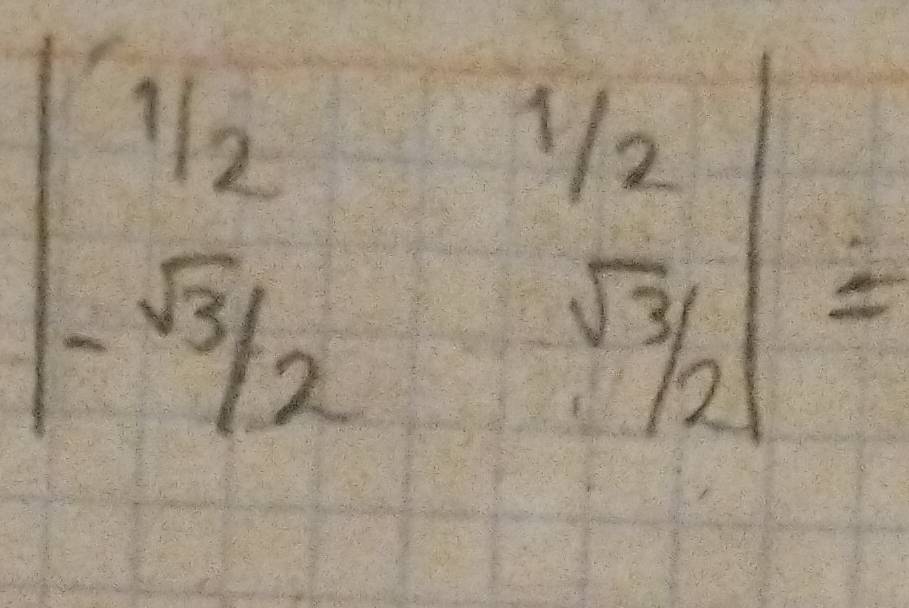 | 1/2 1/2 |
| -√3/2 √3/2 | =